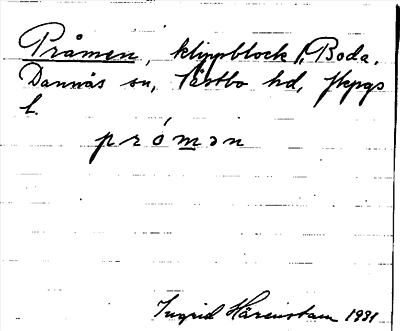 Pråmen, klippblock, Boda,
Dannäs sn, Västbo hd, Jkpgs
l.
prómən
Ingrid Härenstam 1931